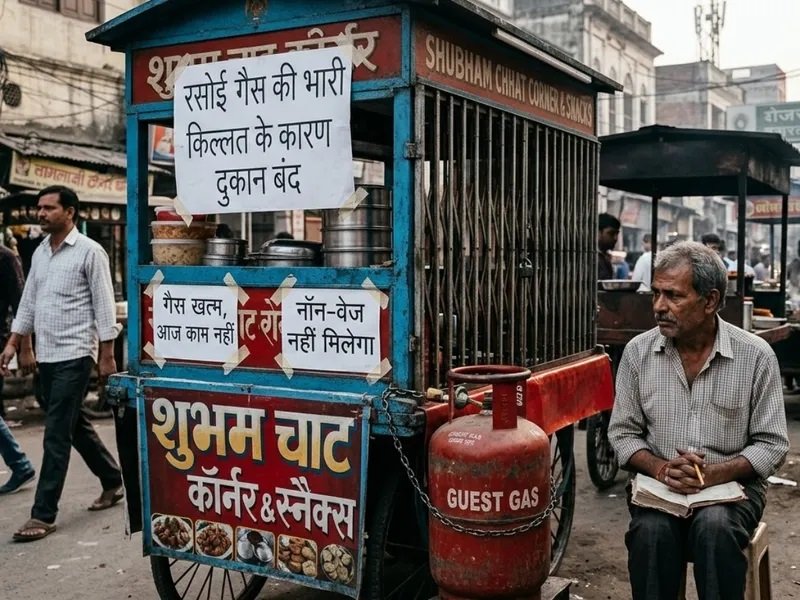 शुभम चाट कॉर्नर
SHUBHAM CHAT CORNER & SNACKS
रसोई गैस की भारी
किल्लत के कारण
दुकान बंद
गैस खत्म,
आज काम नहीं
नॉन-वेज
नहीं मिलेगा
शुभम चाट
कॉर्नर & स्नैक्स
GUEST GAS